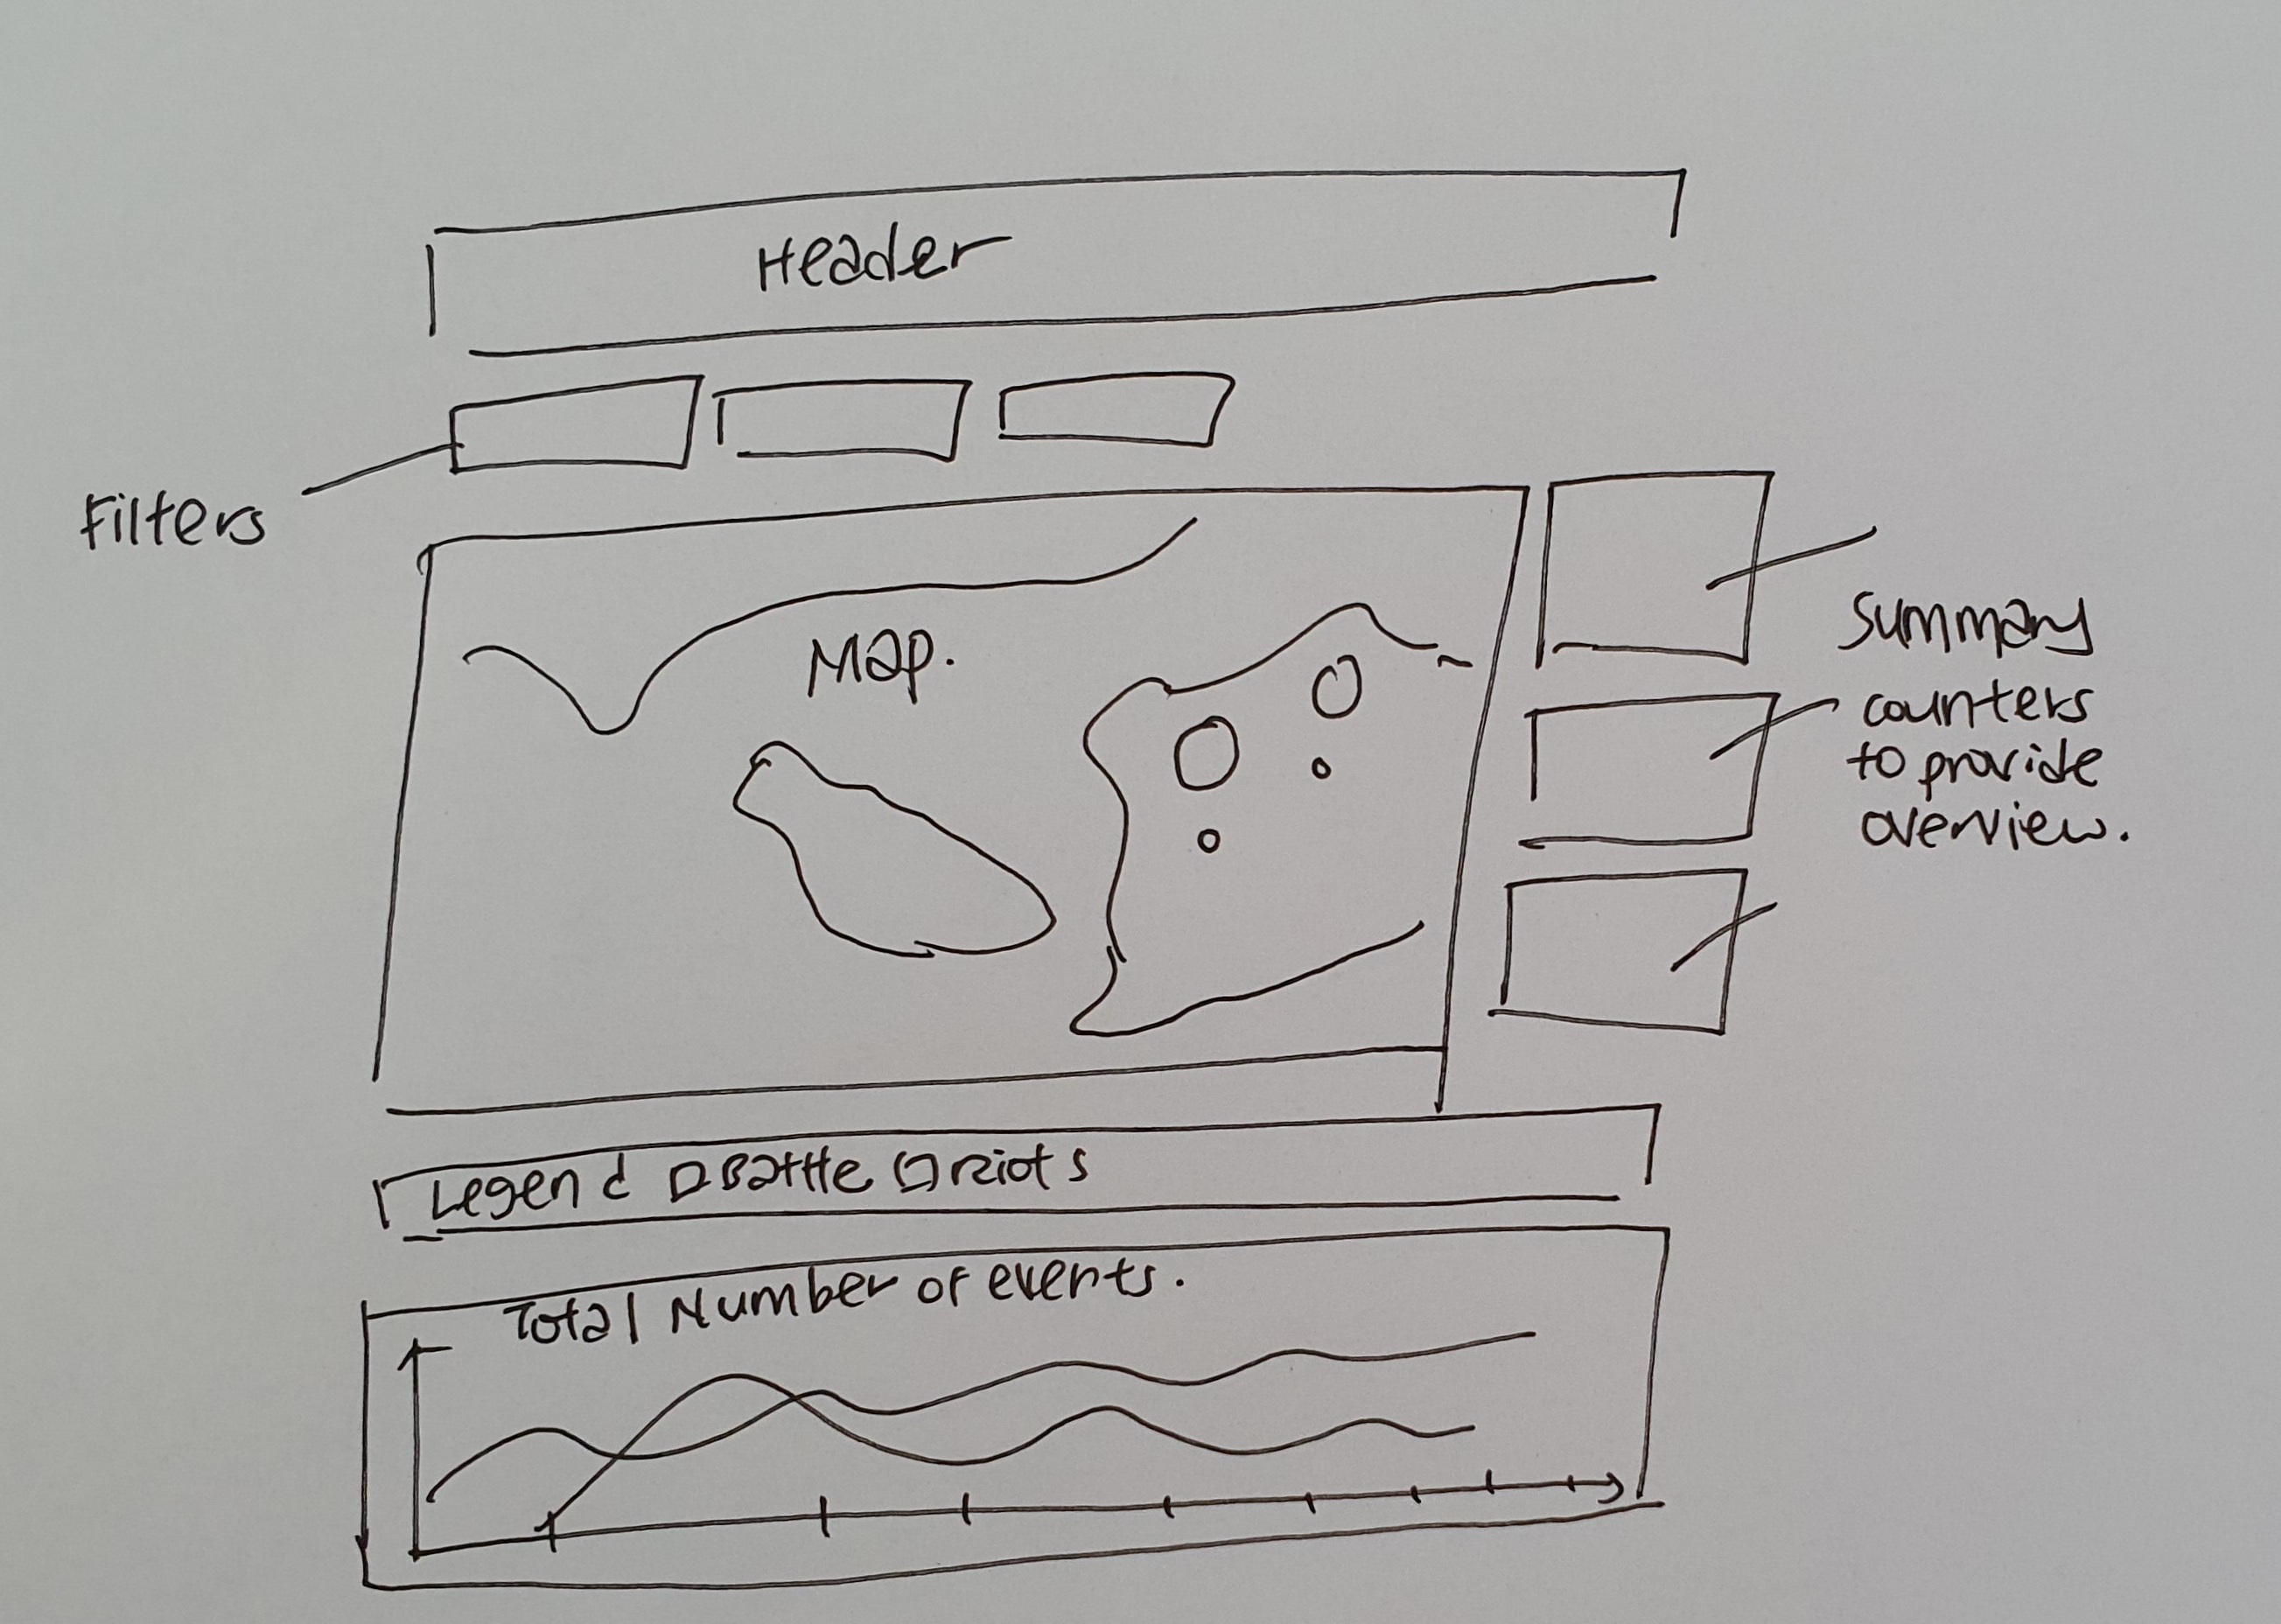 Header
Filters
Map.
Summary
counters
to provide
overview.
Legend Battle Riots
Total Number of events.